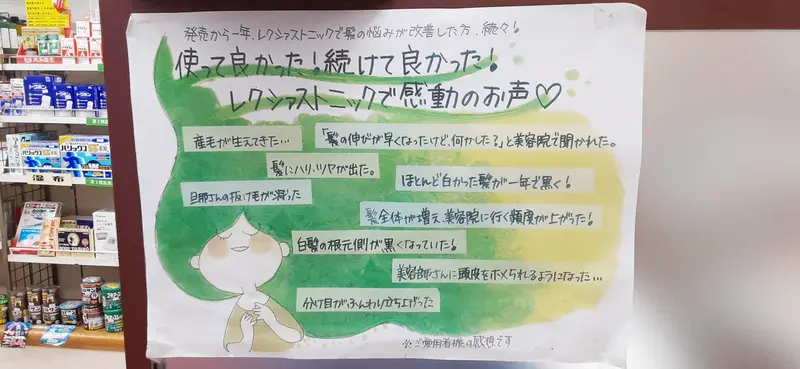 発売から一年、レクシァストニックで髪の悩みが改善した方、続々!
使って良かった!続けて良かった!
レクシァストニックで感動のお声♡
産毛が生えてきた…
「髪の伸びが早くなったけど、何かした?」と美容院で聞かれた。
髪にハリ、ツヤが出た。
ほとんど白かった髪が一年で黒く!
旦那さんの抜け毛が減った
髪全体が増え、美容院に行く頻度が上がった!
白髪の根元側が黒くなっていた!
美容師さんに頭皮をホメられるようになった…
分け目がふんわり立ち上がった
※ご愛用者様の感想です
トクホン
ハリックス
湿布